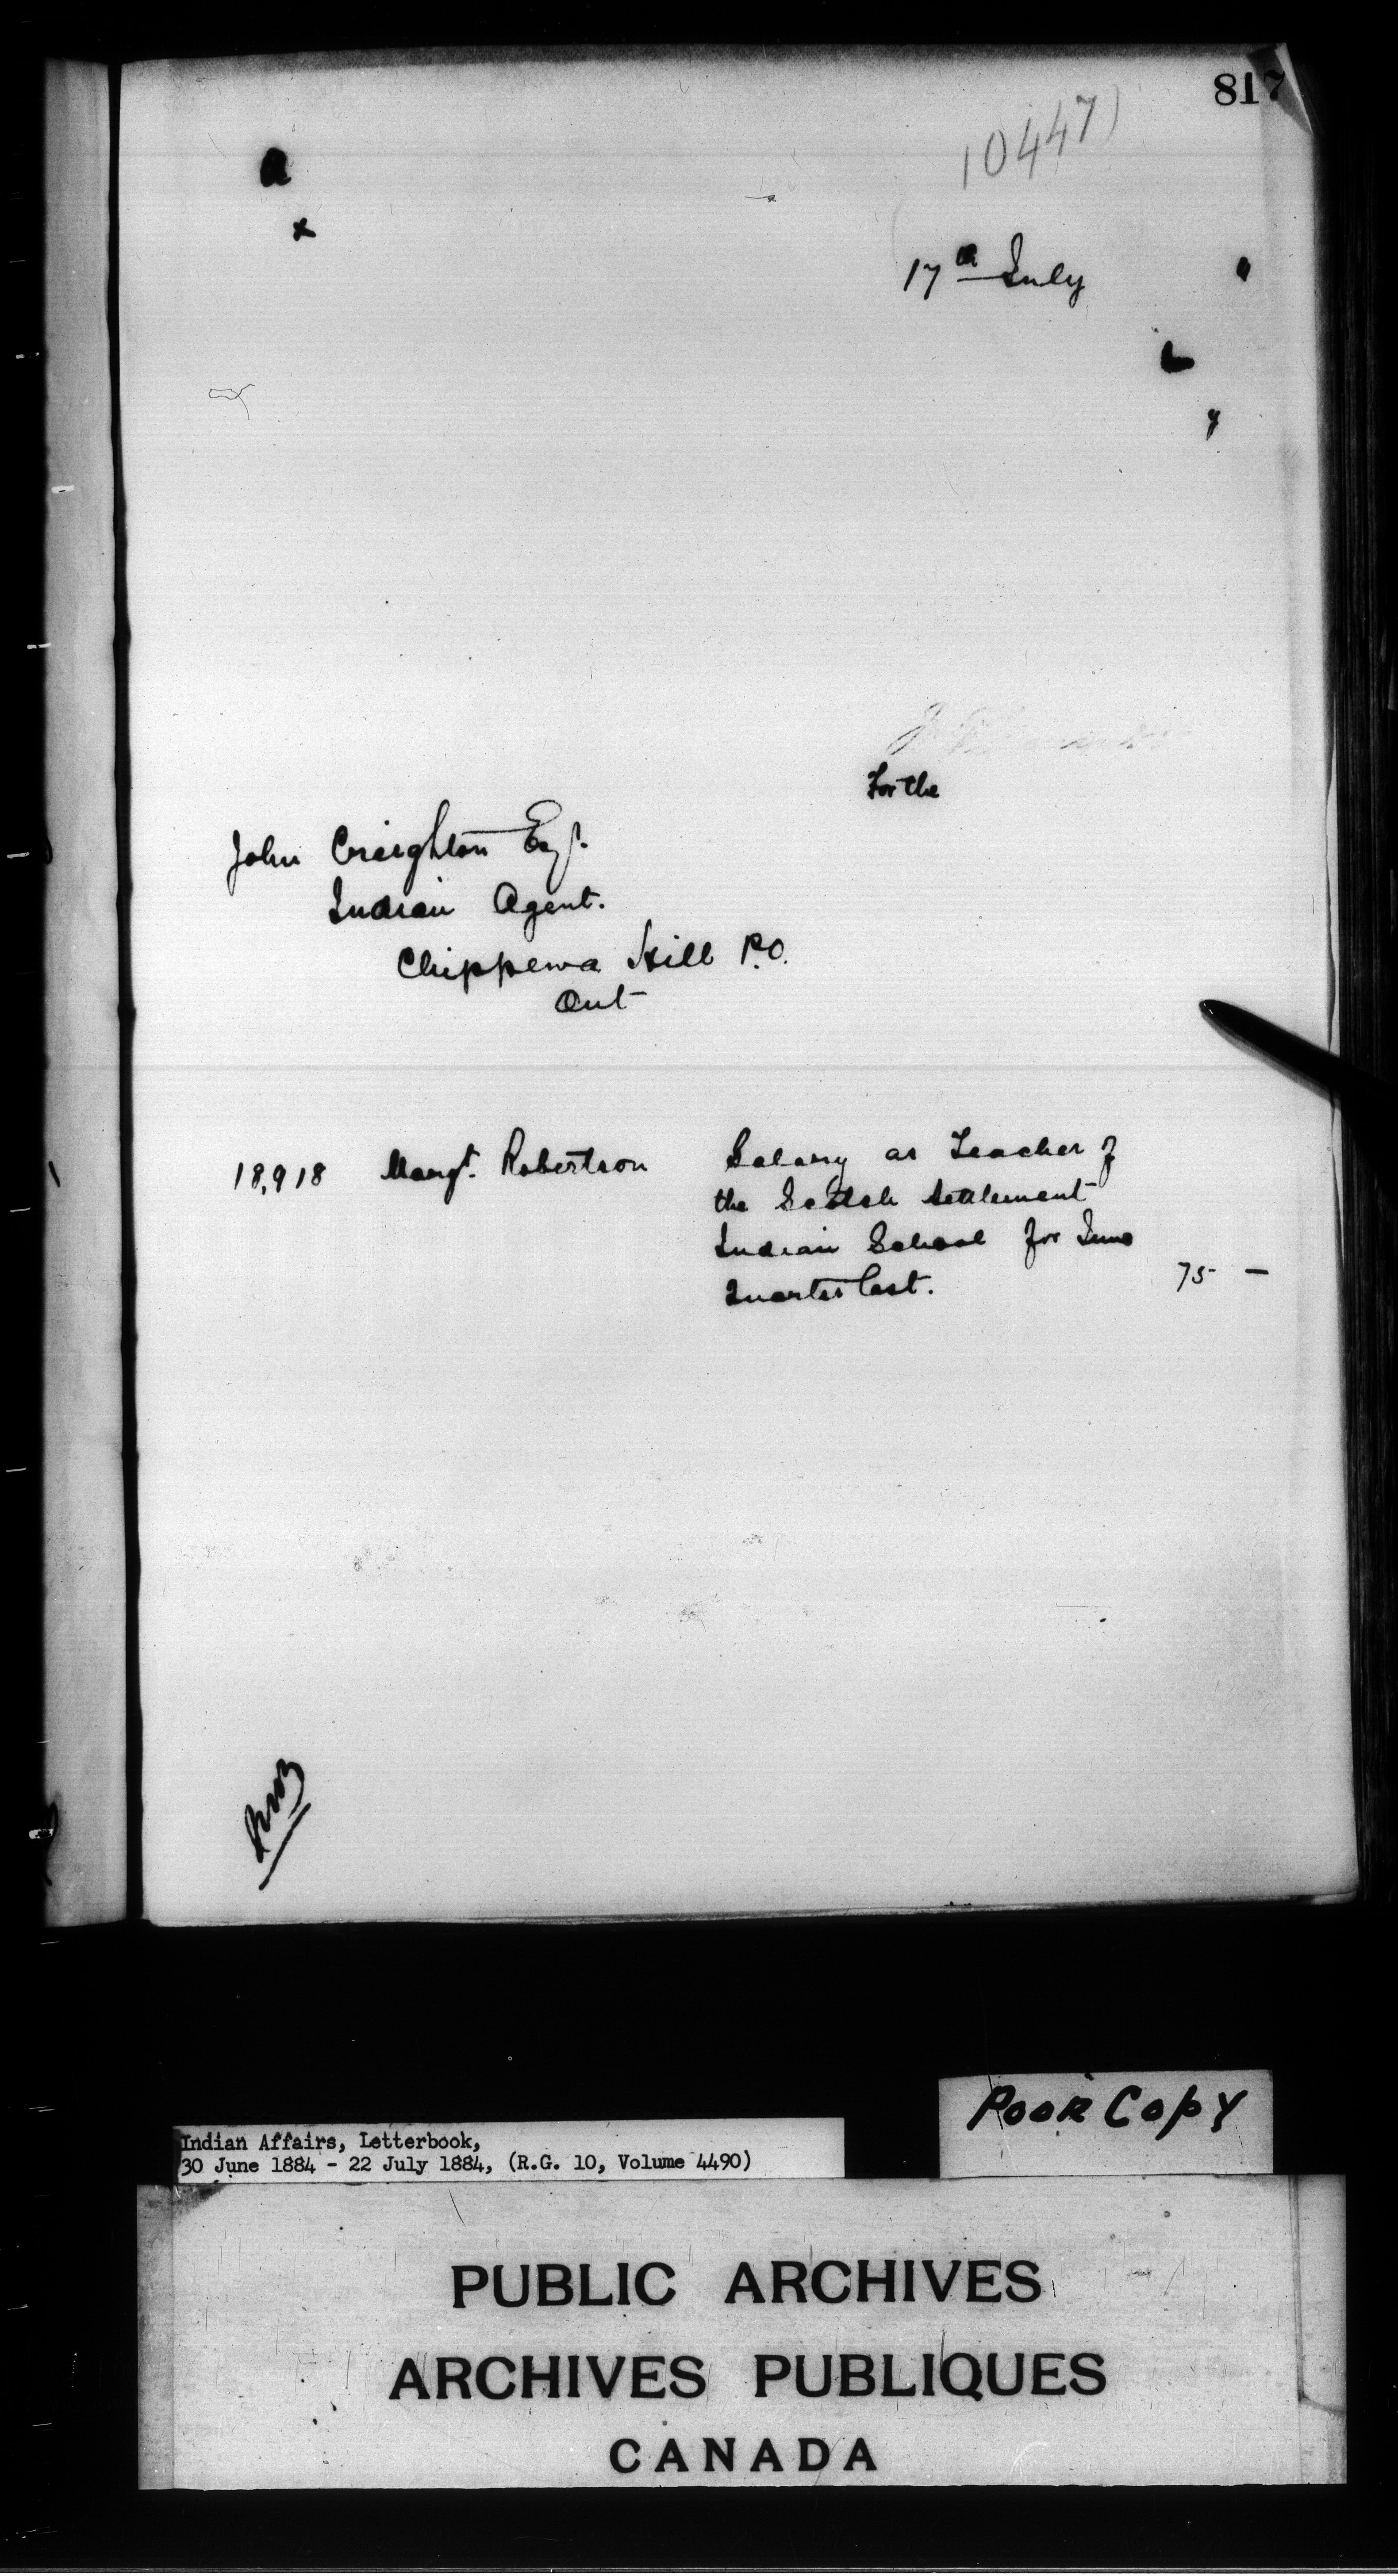 817
10447)
a
x
17th July
L
y
For the
John Creighton Esqr.
Indian Agent.
Chippewa Hill P.O.
Ont
18,918 Margt. Robertson Salary as Teacher of
the Scotch Settlement
Indian School for June
Quarter last. 75 —
Poor Copy
Indian Affairs, Letterbook,
30 June 1884 - 22 July 1884, (R.G. 10, Volume 4490)
PUBLIC ARCHIVES
ARCHIVES PUBLIQUES
CANADA